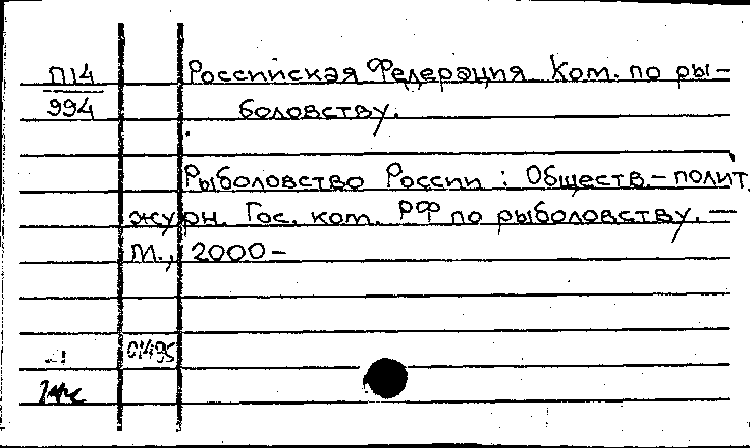 П14 Российская Федерация. Ком. по ры-
994 боловству.
Рыболовство России : Обществ.-полит.
журн. Гос. ком. РФ по рыболовству. —
М., 2000-
01495